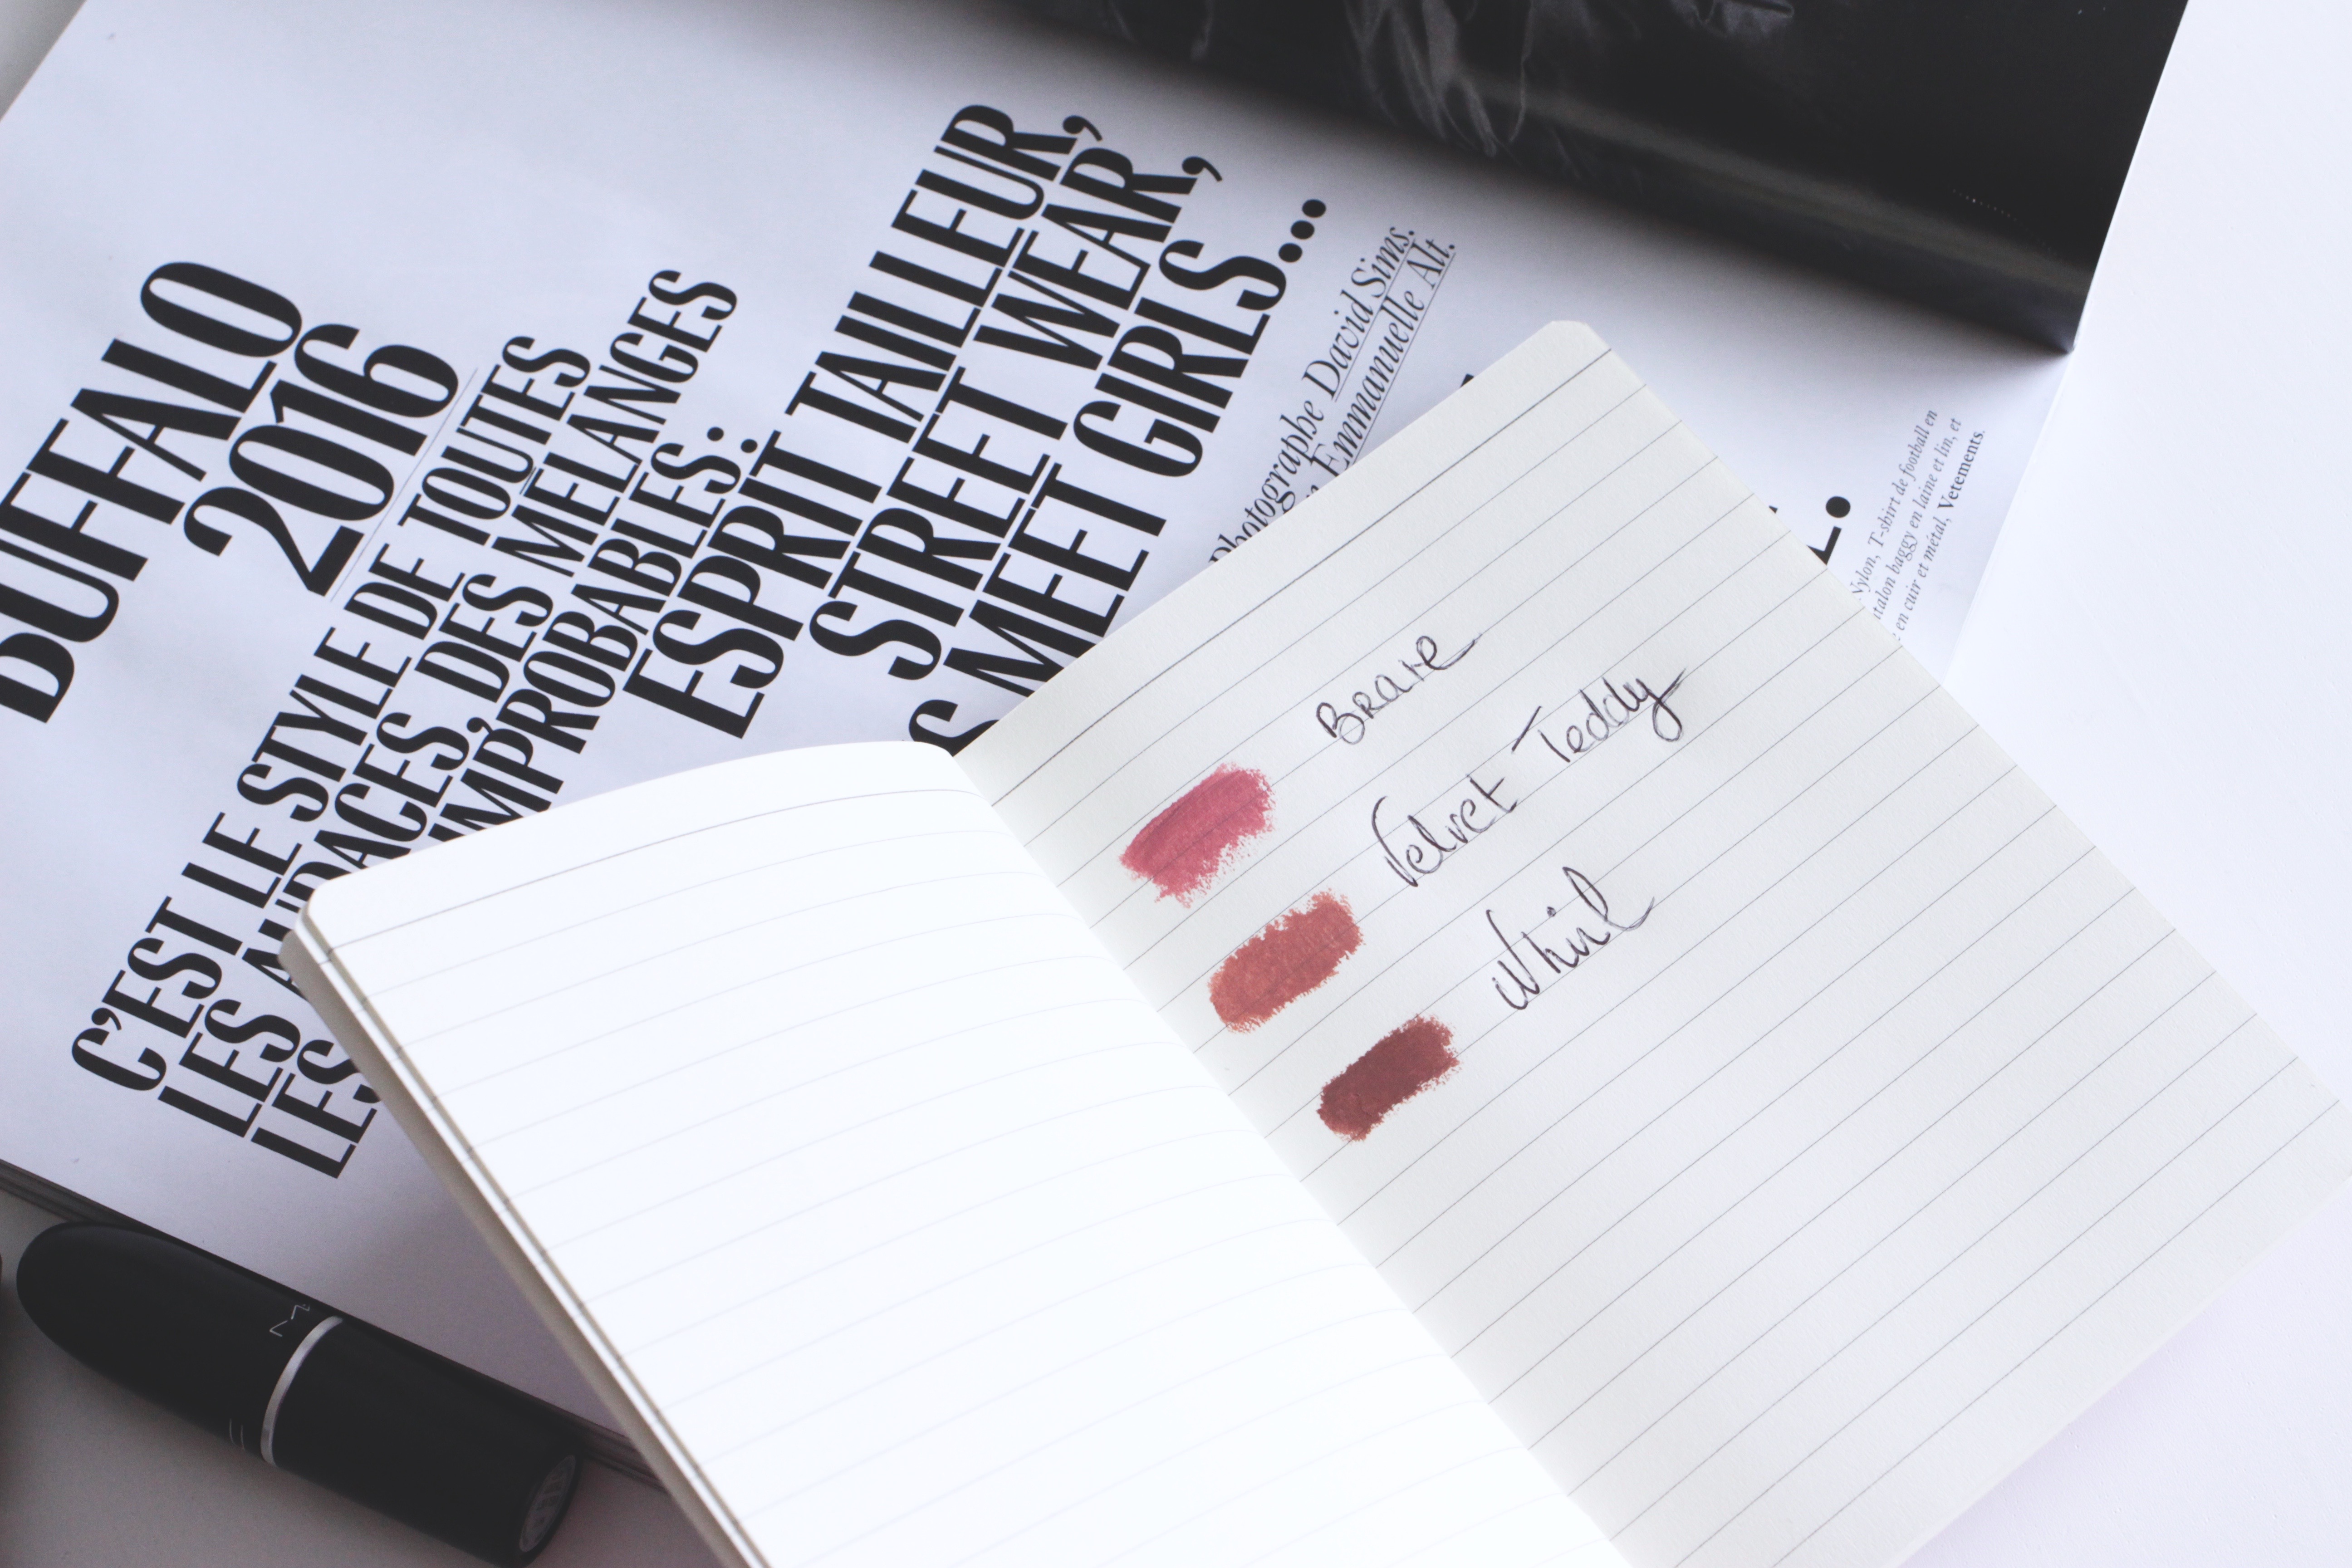 BUFFALO
2016
C'EST LE STYLE DE TOUTES
LES AUDACES, DES MÉLANGES
LES IMPROBABLES:
ESPRIT TAILLEUR,
STREET WEAR,
MEET GIRLS...
Photographe David Sims.
Emmanuelle Alt.
Nylon, T-shirt de football en
baggy en laine et lin, et
en cuir et métal, Vetements.
Brave
Velvet Teddy
Whirl
M